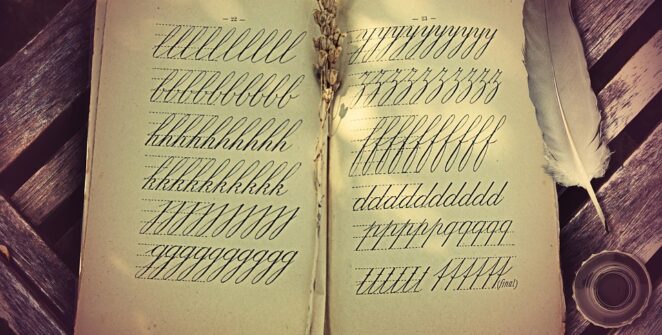 — 22 —
lllllllllll
bbbbbbbbbb
hhhhhhhhhh
kkkkkkkkkk
jjjjjjjjjj
gggggggggg
— 23 —
yyyyyyyyyy
zzzzzzzzzz
ffffffffff
ddddddddddd
ppppppqqqqq
tttttt tttttt (final)